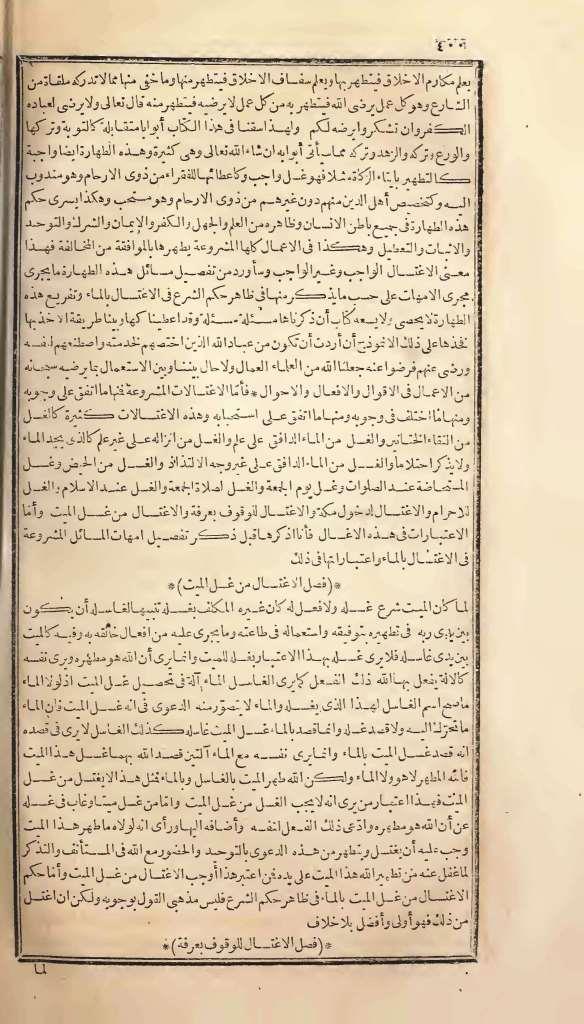 ٤٠٠
يعلم مكارم الاخلاق فيتطهر بها ويعلم سفساف الاخلاق فيتطهر منها وما خفي منها مما لا تدركه ملقاة من
الشارع وهو كل عمل يرضى الله فيتطهر به من كل عمل لا يرضيه فيتطهر منه قال تعالى ولا يرضى لعباده
الكفر وان تشكروا يرضه لكم ولهذا سقنا فى هذا الكتاب أبوابا متقابلة كالتوبة وتركها
والورع وتركه والزهد وتركه مما سيأتى أبوابه ان شاء الله تعالى وهى كثيرة وهذه الطهارة أيضا واجبة
كالتطهير بايتاء الزكاة مثلا فهو غسل واجب وكاعطائها للفقراء من ذوى الارحام وهو مندوب
اليه وكتخصيص أهل الدين منهم دون غيرهم من ذوى الارحام وهو مستحب وهكذا يسرى حكم
هذه الطهارة فى جميع باطن الانسان وظاهره من العلم والجهل والكفر والايمان والشرك والتوحيد
والاثبات والتعطيل وهكذا فى الاعمال كلها المشروعة يطهرها بالموافقة من المخالفة فهذا
معنى الاغتسال الواجب وغير الواجب وسأورد من تفصيل مسائل هذه الطهارة ما يجرى
مجرى الامهات على حسب ما يذكر منها فى ظاهر حكم الشرع فى الاغتسال بالماء وتفريع هذه
الطهارة لا يحصى ولا يسعه كتاب أن ذكرناها مسئلة مسئلة وقد أعطيناكها وبينا طريقة الاخذ بها
فخذها على ذلك الانموذج أن أردت أن تكون من عباد الله الذين اختصهم لخدمته واصطنعهم لنفسه
ورضى عنهم فرضوا عنه جعلنا الله من العلماء العمال ولا حال بيننا وبين الاستعمال بما يرضيه سبحانه
من الاعمال فى الاقوال والافعال والاحوال * فأما الاغتسالات المشروعة فمنها ما اتفق على وجوبه
ومنها ما اختلف فى وجوبه ومنها ما اتفق على استحبابه وهذه الاغتسالات كثيرة كالغسل
من التقاء الختانين والغسل من الماء الدافق على علم والغسل من انزاله على غير علم كالذى يجد الماء
ولا يذكر احتلاما والغسل من الماء الدافق على غير وجه الالتذاذ والغسل من الحيض وغسل
المستحاضة عند الصلوات وغسل يوم الجمعة والغسل لصلاة الجمعة والغسل عند الاسلام والغسل
للاحرام والاغتسال لدخول مكة والاغتسال للوقوف بعرفة والاغتسال من غسل الميت وأما
الاعتبارات فى هذه الاغسال فأنا اذكرها قبل ذكر تفصيل امهات المسائل المشروعة
فى الاغتسال بالماء واعتباراتها فى ذلك
*(فصل الاغتسال من غسل الميت)*
لما كان الميت شرع غسله ولا فعل له كان غيره المكلف بغسله تنبيها لغاسله أن يكون
بين يدى ربه فى تطهيره بتوفيقه واستعماله فى طاعته وما يجرى عليه من افعال خالقه به وفيه كالميت
بين يدى غاسله فلا يرى غسله بهذا الاعتبار بغسله للميت وانما يرى أن الله هو مطهره ويرى نفسه
كالآلة يفعل بها الله ذلك الفعل كما يرى الغاسل الماء آلة فى تحصيل غسل الميت اذ لولا الماء
ما صح اسم الغاسل لهذا الذى يغسله والماء لا يتصور منه الدعوى فى انه غسل الميت فان الماء
ما تحرك اليه ولا قصد غسله وانما قصد بالماء غسل الميت غاسله كذلك الغاسل لا يرى فى قصده
انه قصد غسل الميت بالماء وانما يرى نفسه مع الماء آلتين قصد الله بهما غسل هذا الميت
فالله المطهر لا هو ولا الماء ولكن الله طهر الميت بالغاسل وبالماء فمثل هذا لا يغتسل من غسل
الميت فهذا اعتبار من يرى انه لا يجب الغسل من غسل الميت وامّا من غسل ميتا وغاب فى غسله
عن أن الله هو مطهره وادّعى ذلك الفعل لنفسه وأضافه اليها ورأى انه لولاه ما طهر هذا الميت
وجب عليه أن يغتسل ويتطهر من هذه الدعوى بالتوحيد والحضور مع الله فى المستأنف والتذكر
لما غفل عنه من تطهير الله هذا الميت على يده فمن اعتبر هذا أوجب الاغتسال من غسل الميت وأما حكم
الاغتسال من غسل الميت بالماء فى ظاهر حكم الشرع فليس مذهبى القول بوجوبه ولكن ان اغتسل
من ذلك فهو أولى وأفضل بلا خلاف
*(فصل الاغتسال للوقوف بعرفة)*
لما